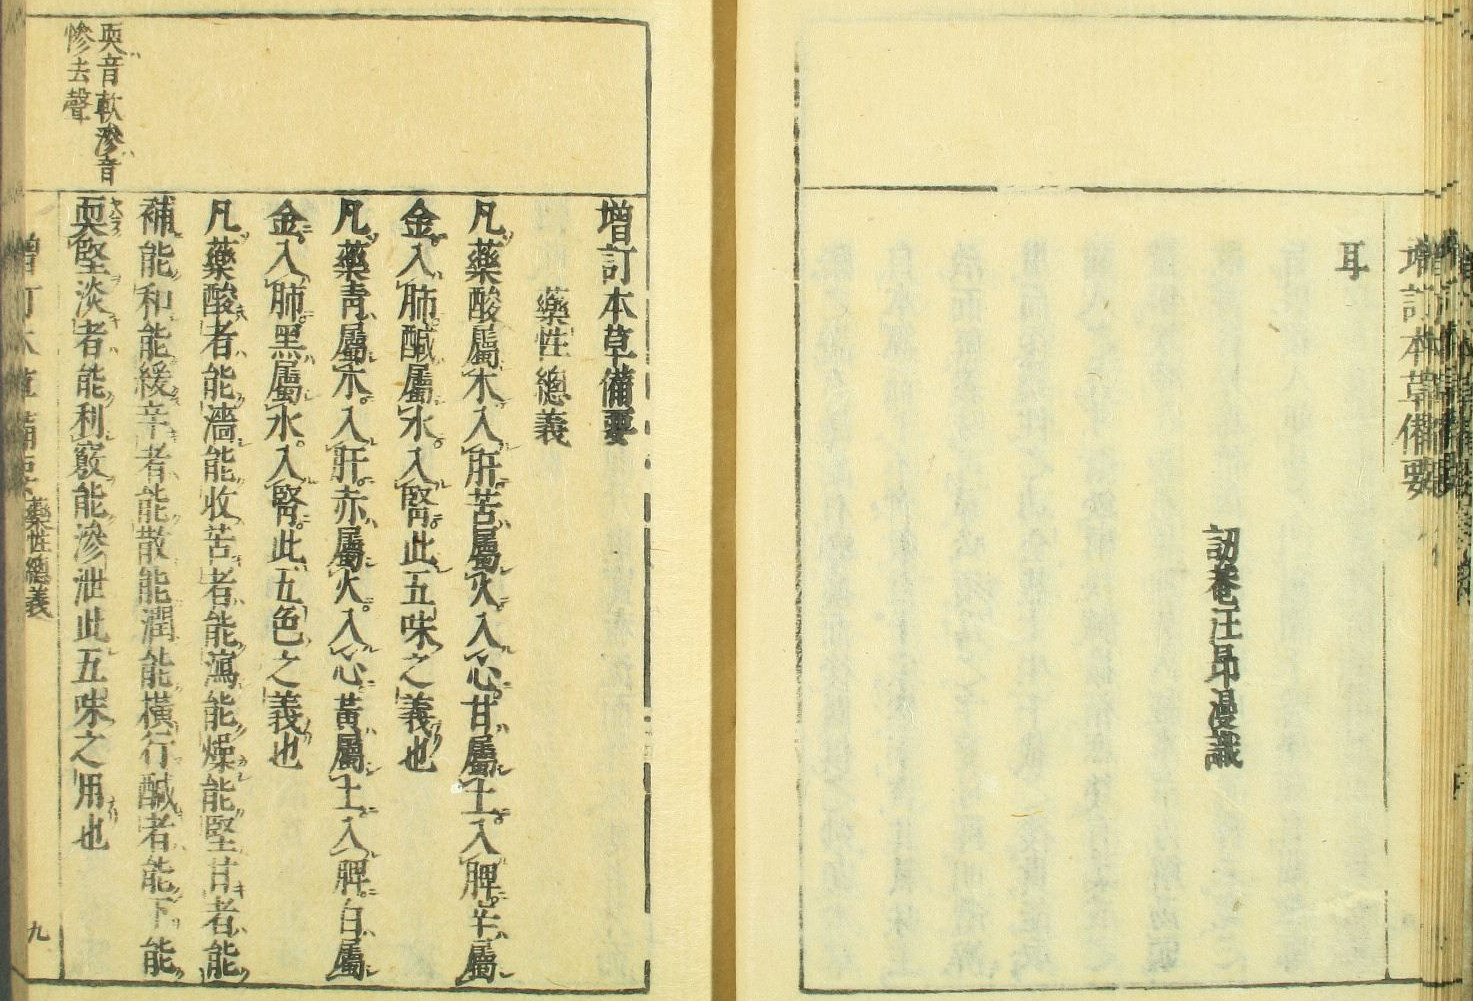 增訂本草備要
耳
訒菴汪昂漫識
增訂本草備要
藥性總義
凡藥酸屬木入肝苦屬火入心甘屬土入脾辛屬
金入肺鹹屬水入腎此五味之義也
凡藥靑屬木入肝赤屬火入心黃屬土入脾白屬
金入肺黑屬水入腎此五色之義也
凡藥酸者能濇能收苦者能瀉能燥能堅甘者能
補能和能緩辛者能散能潤能橫行鹹者能下能
耎堅淡者能利竅能滲泄此五味之用也
耎音軟滲音
惨去聲
增訂本草備要 藥性總義 九